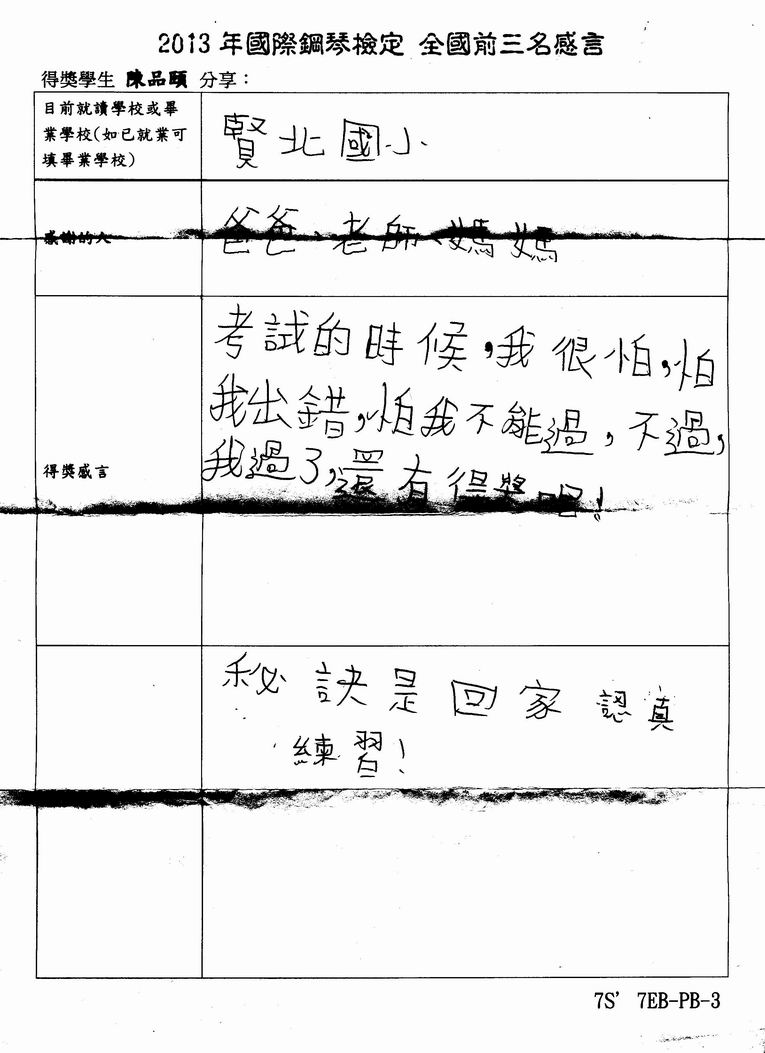 2013 年國際鋼琴檢定 全國前三名感言
得獎學生 陳品頤 分享：
目前就讀學校或畢
業學校(如已就業可
填畢業學校)
賢北國小
感謝的人
爸爸、老師、媽媽
得獎感言
考試的時候，我很怕，怕
我出錯，怕我不能過，不過，
我過了，還有得獎呢！
秘訣是回家認真
練習！
7S' 7EB-PB-3